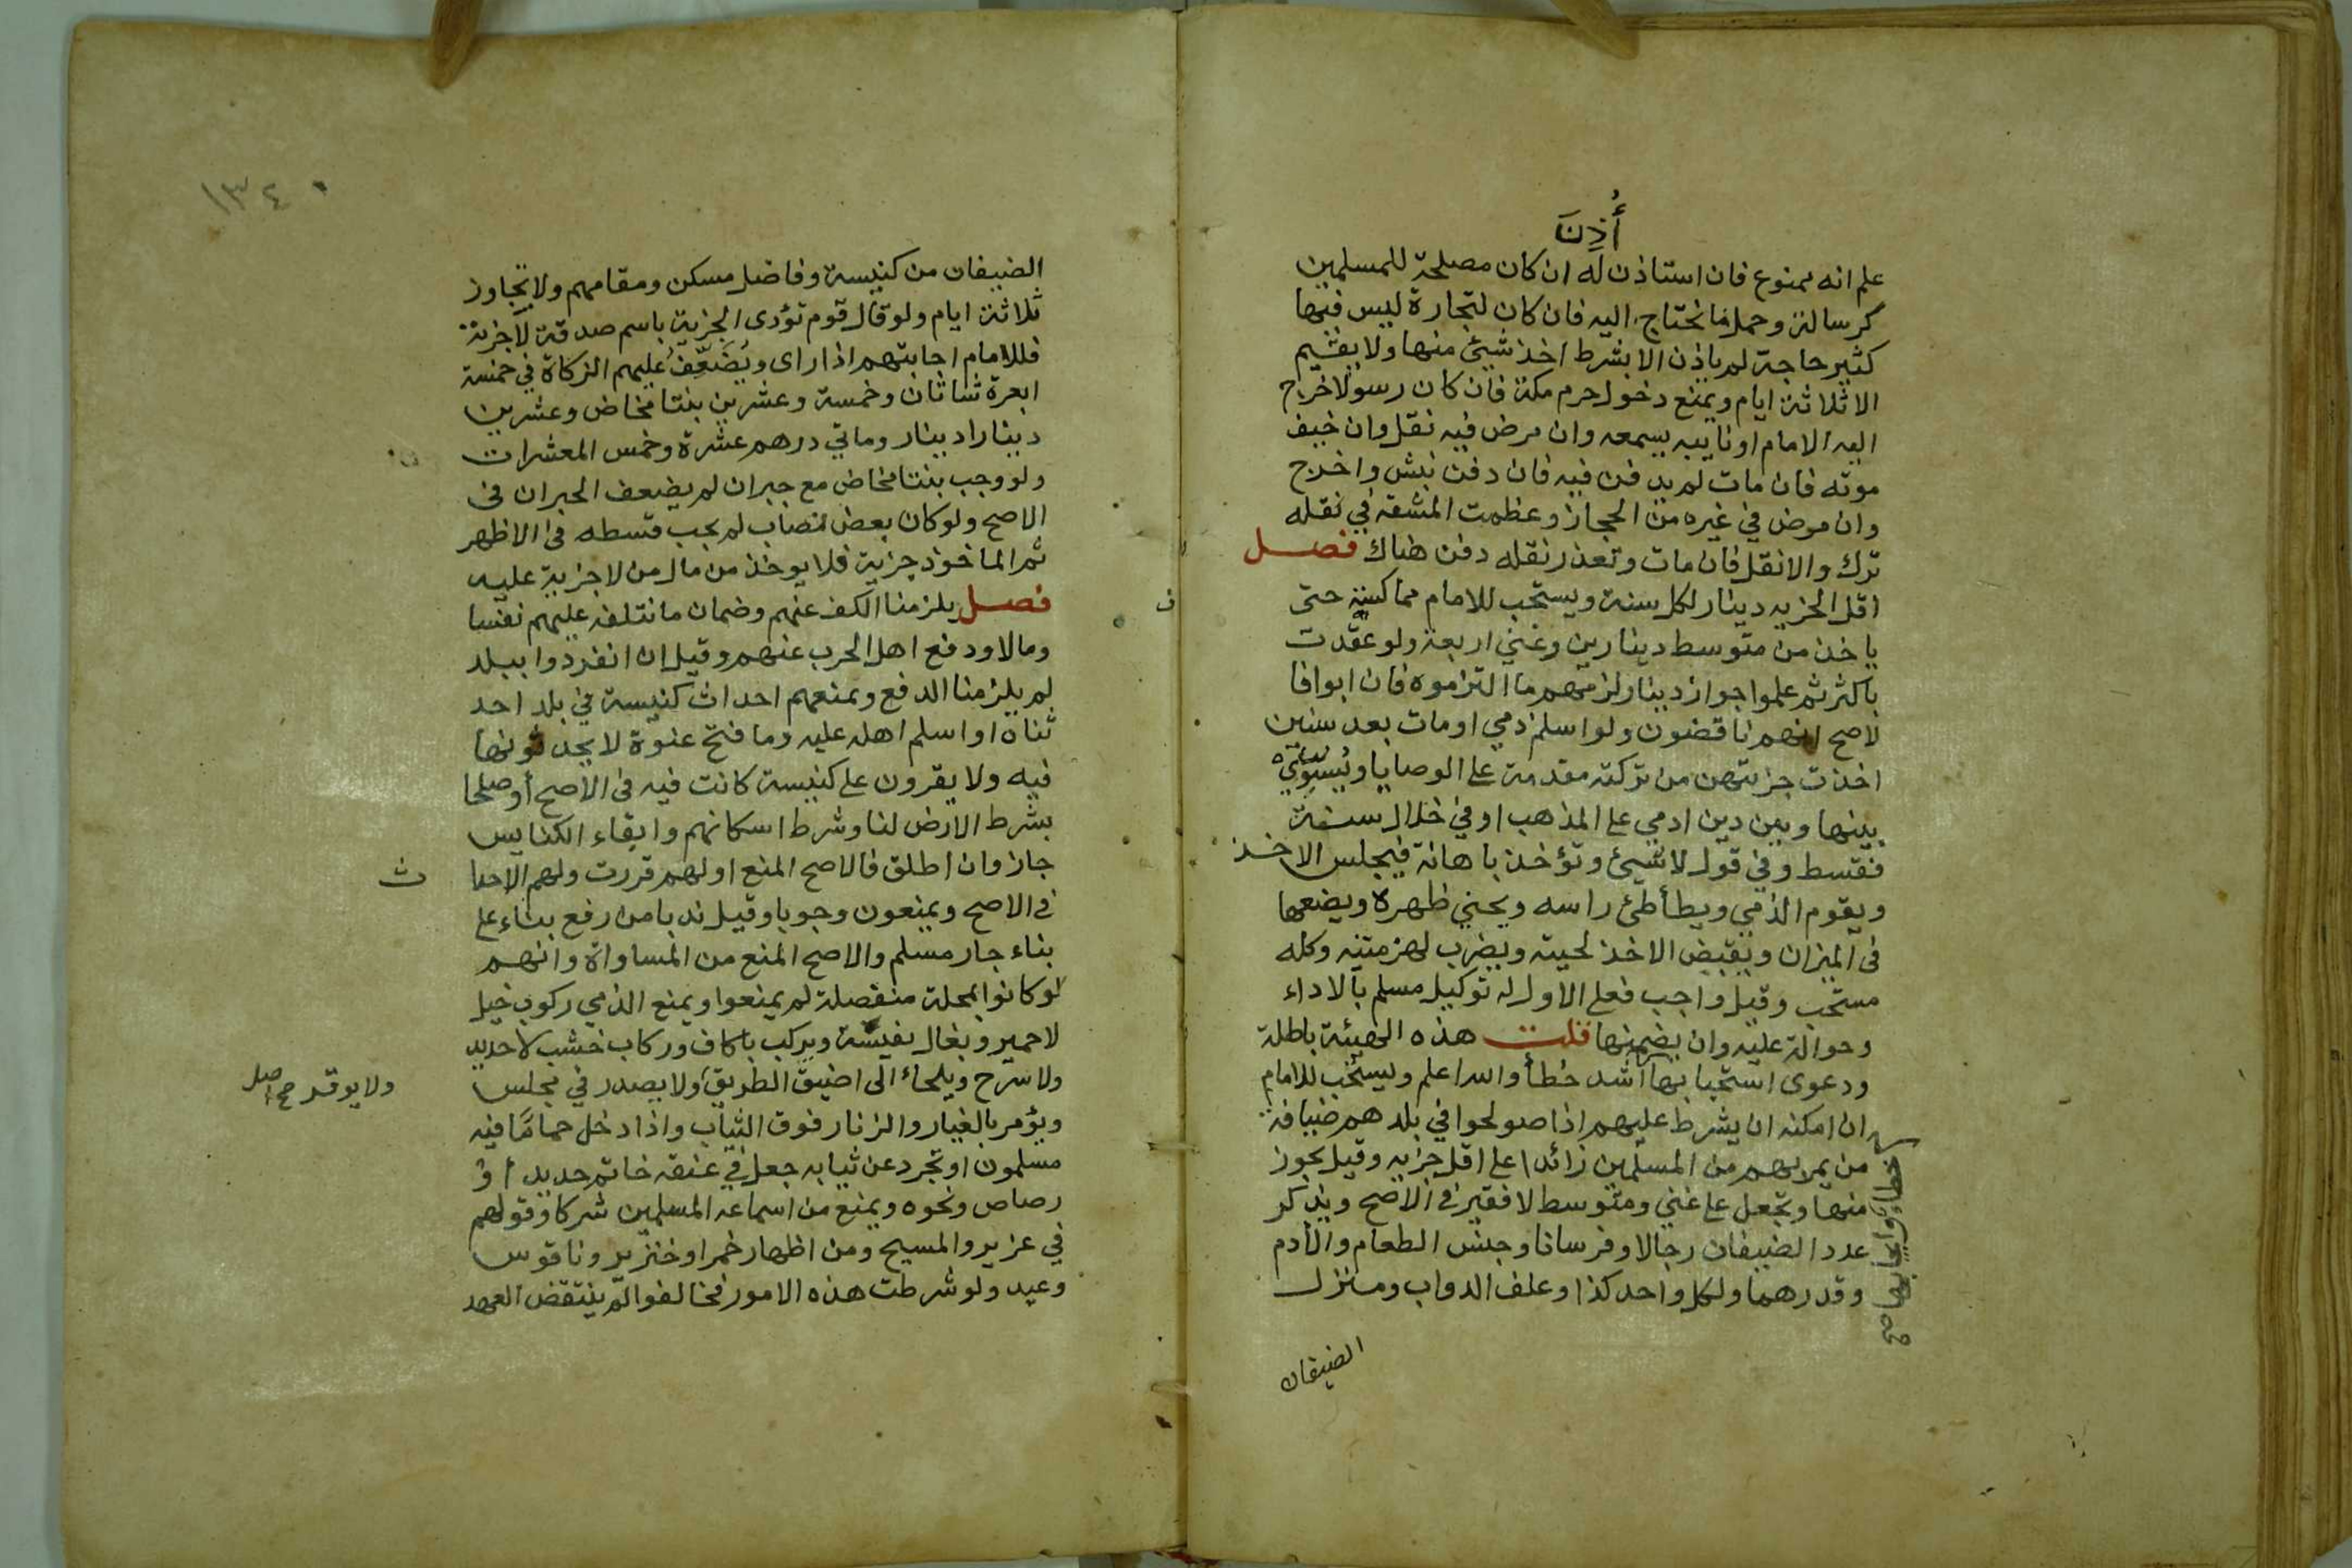 أُذِنَ
علم انه ممنوع فان استاذن له ان كان مصلحة للمسلمين
كرسالة وحمل ما نحتاج اليه فان كان لتجارة ليس فيها
كثير حاجة لم ياذن الا بشرط اخذ شيئ منها ولا يقيم
الا ثلاثة ايام ويمنع دخول حرم مكة فان كان رسولا خرج
اليه الامام او نايبه يسمعه وان مرض فيه نقل وان خيف
موته فان مات لم يدفن فيه فان دفن نبش واخرج
وان مرض في غيره من الحجاز وعظمت المشقة في نقله
ترك والا نقل فان مات وتعذر نقله دفن هناك فصل
اقل الجزيه دينار لكل سنة ويستحب للامام مماكسة حتى
ياخذ من متوسط دينارين وغني اربعة ولو عقدت
باكثر ثم علموا جواز دينار لزمهم ما التزموه فان ابوا فا
لاصح انهم ناقضون ولو اسلم ذمي او مات بعد سنين
اخذت جزيتهن من تركته مقدمة على الوصايا ويُسَوِّي
بينها وبين دين ادمي على المذهب او في خلال سنة
فقسط وفي قول لا شيئ وتؤخذ باهانة فيجلس الاخذ
ويقوم الذمي ويطأطئ راسه ويحني ظهره ويضعها
فى الميزان ويقبض الاخذ لحيته ويضرب لهزمتيه وكله
مستحب وقيل واجب فعلى الاول له توكيل مسلم بالاداء
وحوالة عليه وان يضمنها قلت هذه الهيئة باطلة
ودعوى استحبابها اشد خطأ والله اعلم ويستحب للامام
ان امكنه ان يشرط عليهم اذا صولحوا في بلدهم ضيافة
من يمر بهم من المسلمين زائدا على اقل جزيه وقيل يجوز
منها وتجعل على غني ومتوسط لا فقير فى الاصح ويذكر
عدد الضيفان رجالا وفرسانا وجنس الطعام والأدم
وقدرهما ولكل واحد كذا وعلف الدواب ومنزل
الضيفان
١٣٤
الضيفان من كنيسة وفاضل مسكن ومقامهم ولا يجاوز
ثلاثة ايام ولو قال قوم نؤدى الجزية باسم صدقة لا جزية
فللامام اجابتهم اذا راى ويُضَعِّفُ عليهم الزكاة في خمسة
ابعرة شاتان وخمسة وعشرين بنتا مخاض وعشرين
دينارا دينار ومايتي درهم عشرة وخمس المعشرات
ولو وجب بنتا مخاض مع جبران لم يضعف الجبران فى
الاصح ولو كان بعض نصاب لم يجب قسطه فى الاظهر
ثم الماخوذ جزية فلا يوخذ من مال من لا جزية عليه
فصل يلزمنا الكف عنهم وضمان ما نتلفه عليهم نفسا
ومالا ودفع اهل الحرب عنهم وقيل ان انفردوا ببلد
لم يلزمنا الدفع ونمنعهم احداث كنيسة في بلد احد
ثناه او اسلم اهله عليه وما فتح عنوة لا يحدثونها
فيه ولا يقرون على كنيسة كانت فيه فى الاصح أو صلحا
بشرط الارض لنا وشرط اسكانهم وابقاء الكنايس
جاز وان اطلق فالاصح المنع او لهم قررت ولهم الاحدا
ث
فى الاصح ويمنعون وجوبا وقيل ندبا من رفع بناء على
بناء جار مسلم والاصح المنع من المساواة وانهم
لو كانوا بمحلة منفصلة لم يمنعوا ويمنع الذمي ركوب خيل
لا حمير وبغال نفيسة ويركب باكاف وركاب خشب لا حديد
ولا سرج ويلجاء الى اضيق الطريق ولا يصدر في مجلس
ولا يوقر صح اصل
ويؤمر بالغيار والزنار فوق الثياب واذا دخل حمامًا فيه
مسلمون او تجرد عن ثيابه جعل في عنقه خاتم حديد أو
رصاص ونحوه ويمنع من اسماعه المسلمين شركا وقولهم
في عزير والمسيح ومن اظهار خمر او خنزير وناقوس
وعيد ولو شرطت هذه الامور فخالفوا لم ينتقض العهد